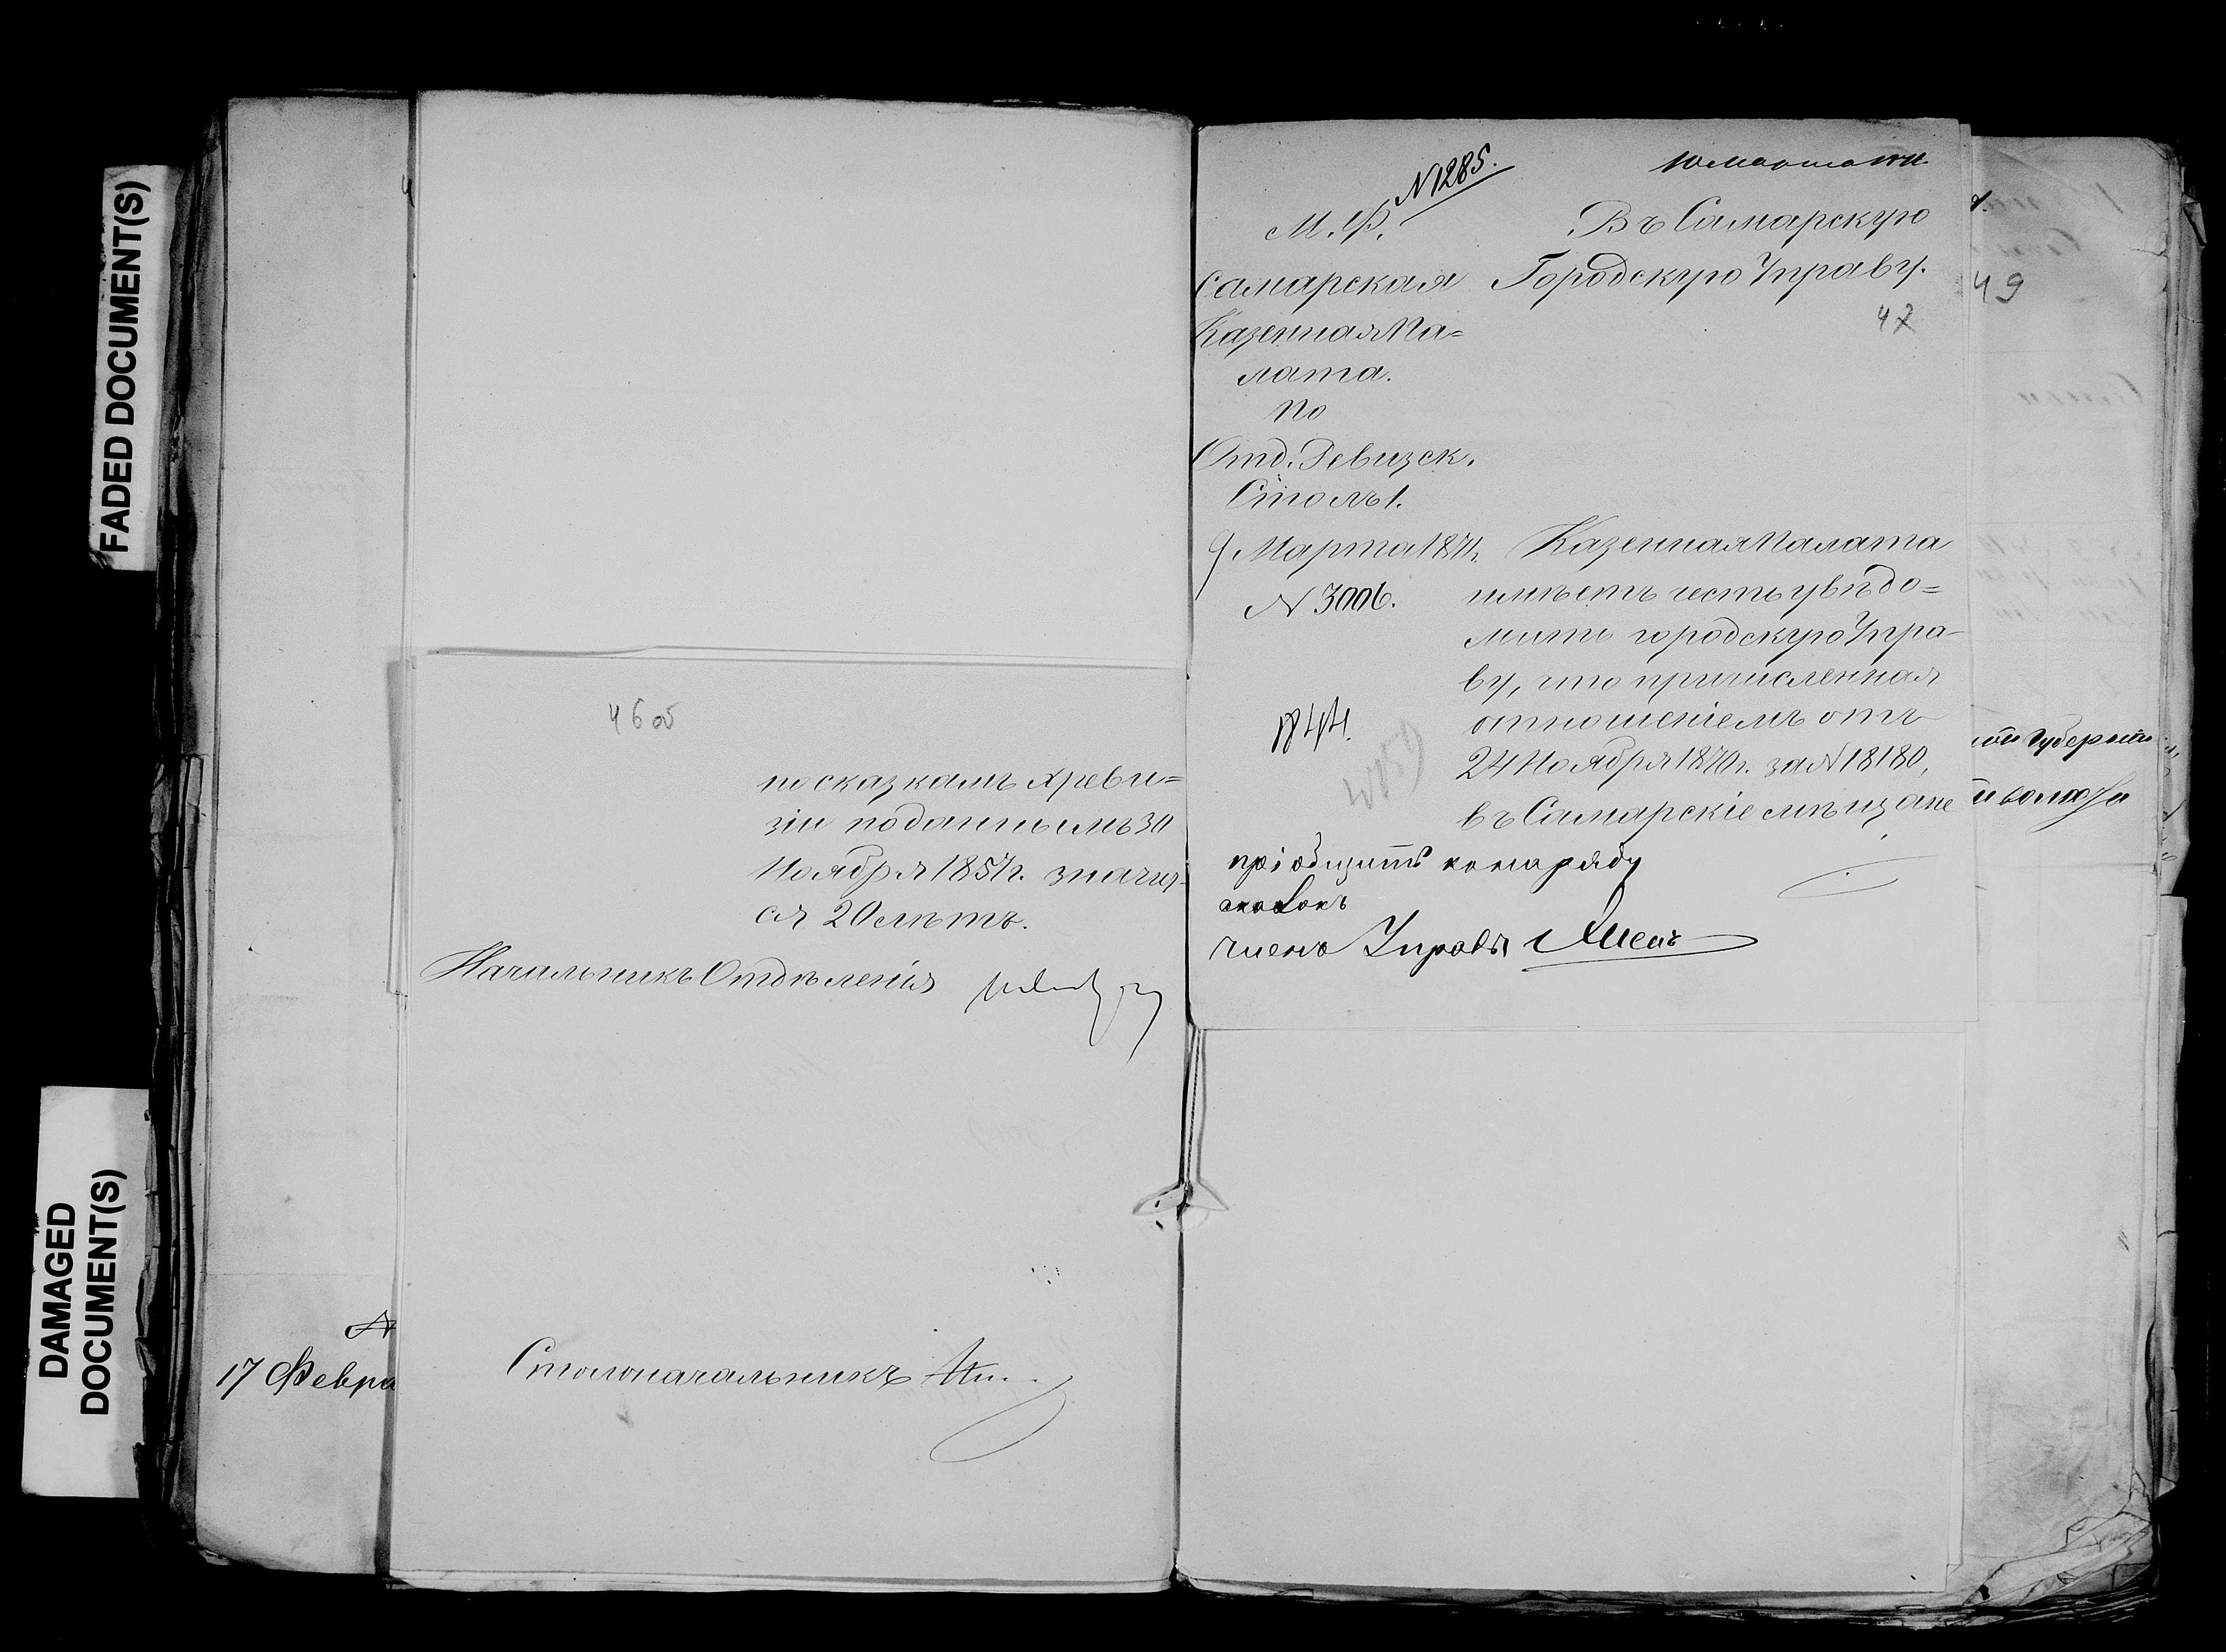 FADED DOCUMENT(S)
DAMAGED
DOCUMENT(S)
17 Февра
46 об
по сказкамъ X реви=
зіи поданнымъ 30
Ноября 1857 г. значит-
ся 20 лѣтъ.
Начальникъ Отдѣленія
Столоначальникъ
N 1285.
10 марта
М. Ф.
Самарская
Казенная Па=
лата.
По
Отд. Ревизск.
Столъ 1.
9 Марта 1871 г.
N 3006.
1844.
Въ Самарскую
Городскую Управу.
47
Казенная Палата
имѣетъ честь увѣдо=
мить городскую Упра-
ву, что причисленная
отношеніемъ отъ
24 Ноября 1870 г. за N 18180,
въ Самарскіе мѣщане
пріобщить къ наряду
членъ Управы
49
губерніи